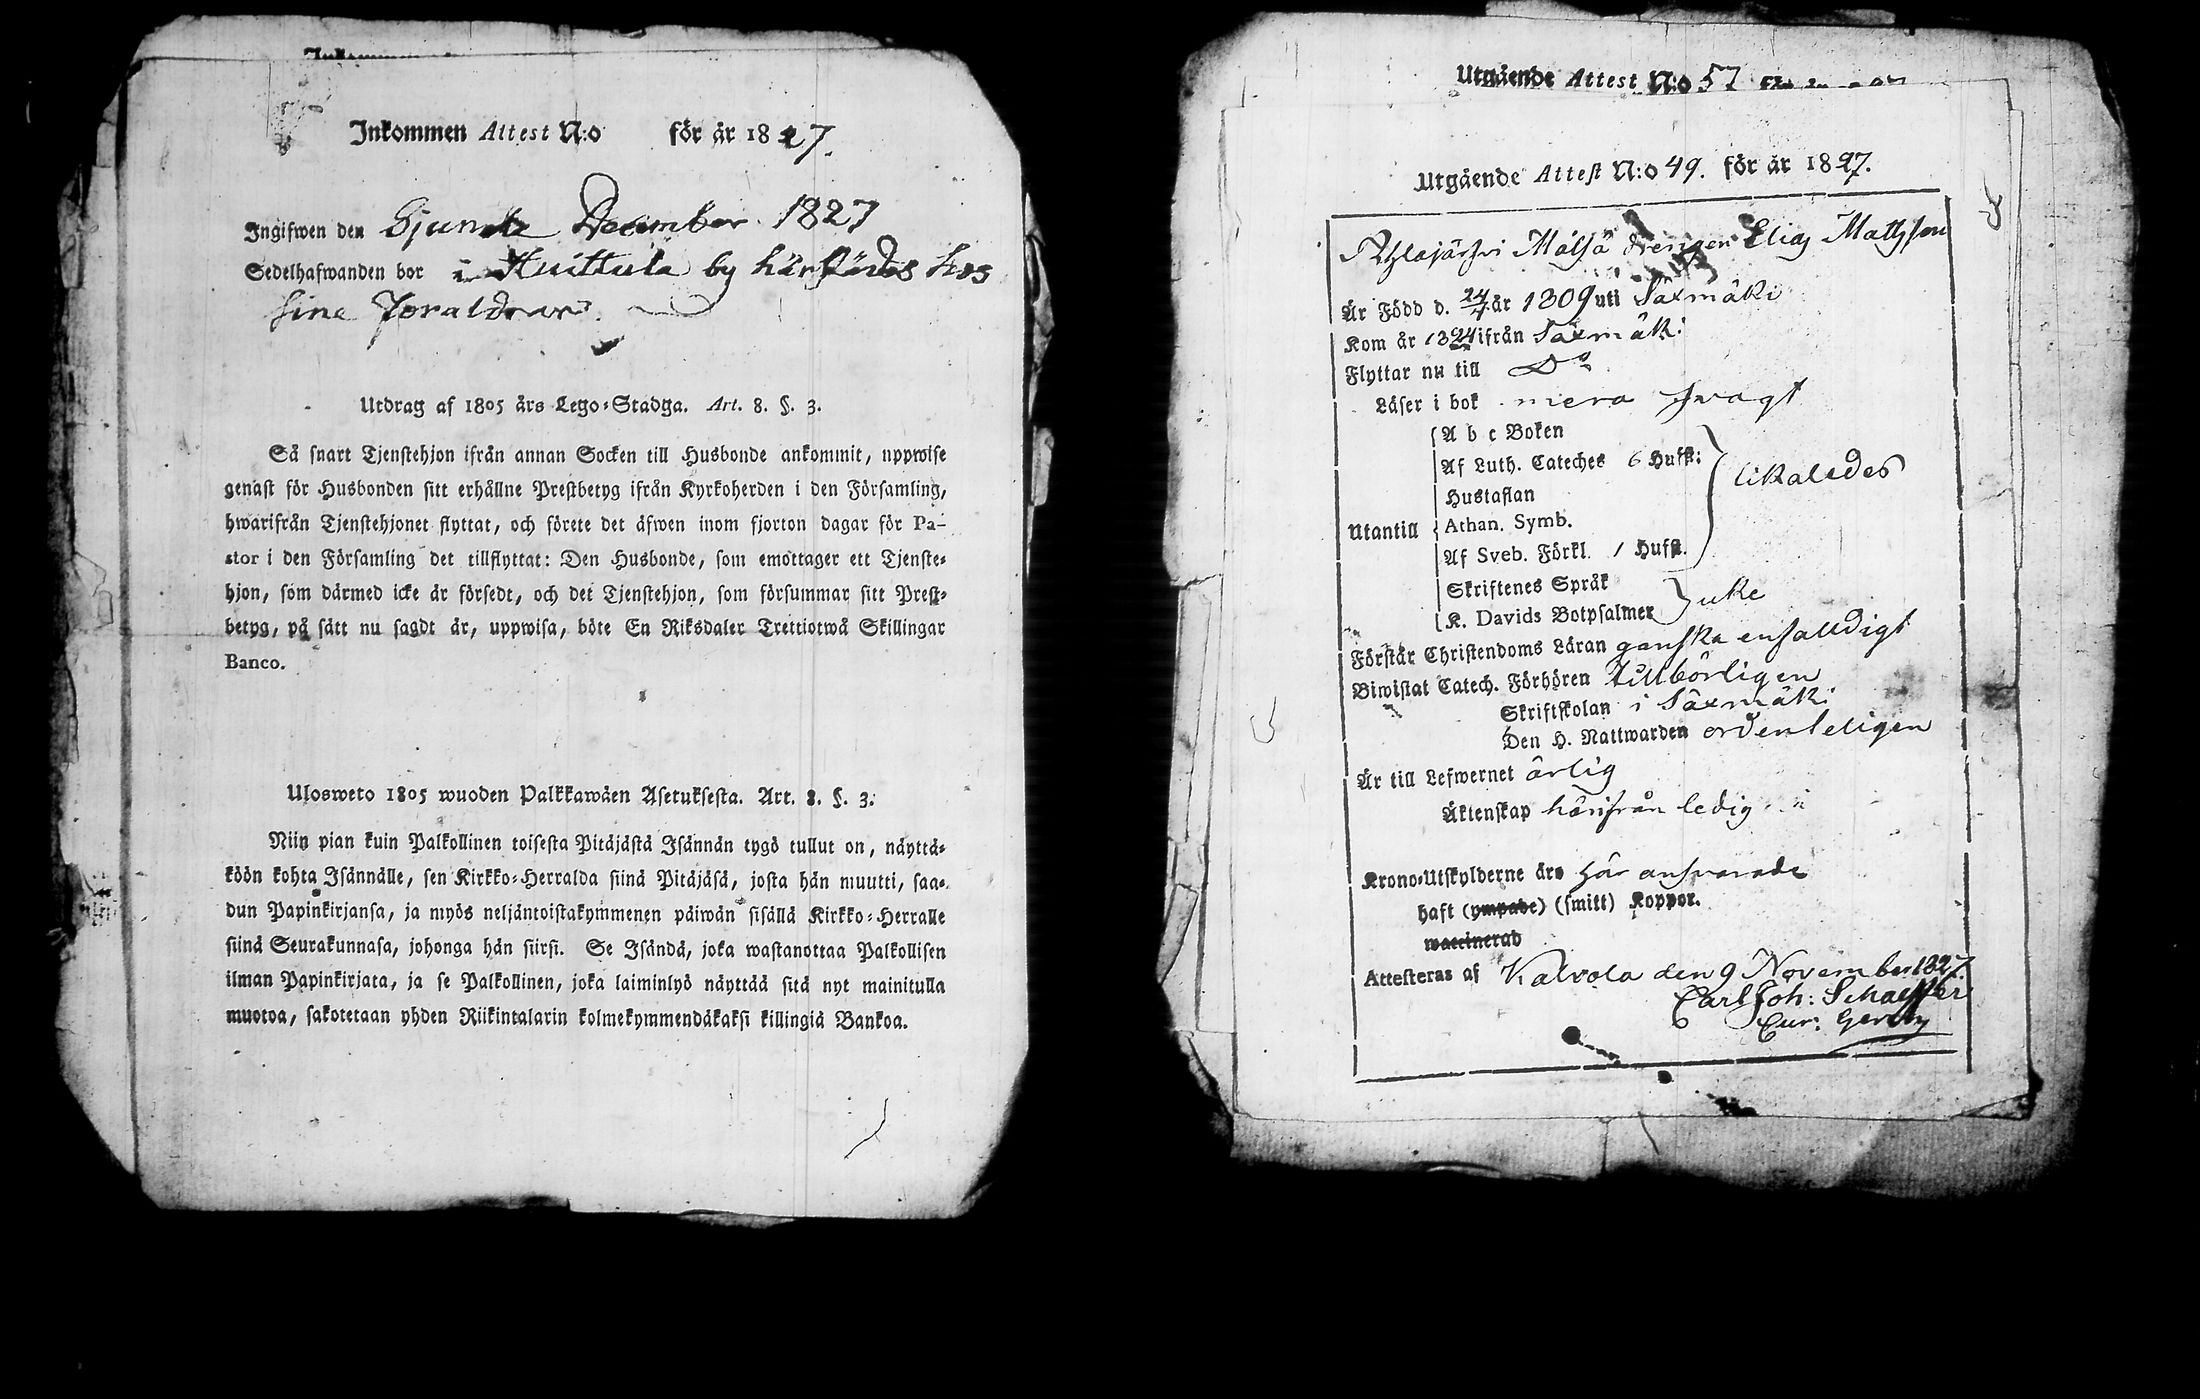 Inkommen Attest N:o för år 1827.
Ingifwen den Sjunde December 1827
Sedelhafwanden bor i Huittula by härstädes hos
sine Föräldrar.
Utdrag af 1805 års Lego-Stadga. Art. 8. §. 3.
Så snart Tjenstehjon ifrån annan Socken till Husbonde ankommit, uppwise
genast för Husbonden sitt erhållne Prestbetyg ifrån Kyrkoherden i den Församling,
hwarifrån Tjenstehjonet flyttat, och förete det äfwen inom fjorton dagar för Pa-
stor i den Församling det tillflyttat: Den Husbonde, som emottager ett Tjenste-
hjon, som därmed icke är försedt, och det Tjenstehjon, som försummar sitt Prest-
betyg, på sätt nu sagdt är, uppwisa, böte En Riksdaler Trettiotwå Skillingar
Banco.
Ulosweto 1805 wuoden Palkkawäen Asetuksesta. Art. 8. §. 3.
Niin pian kuin Palkollinen toisesta Pitäjästä Isännän tygö tullut on, näyttä-
köön kohta Isännälle, sen Kirkko-Herralda siinä Pitäjäsä, josta hän muutti, saa-
dun Papinkirjansa, ja myös neljäntoistakymmenen päiwän sisällä Kirkko-Herralle
siinä Seurakunnasa, johonga hän siirsi. Se Isändä, joka wastanottaa Palkollisen
ilman Papinkirjata, ja se Palkollinen, joka laiminlyö näyttää sitä nyt mainitulla
muotoa, sakotetaan yhden Riikintalarin kolmekymmendäkaksi killingiä Bankoa.
Utgående Attest N:o 57
Utgående Attest N:o 49. för år 1827.
Ahlajärfvi Mälsä drengen Elias Mattsson
Är Född d. 24/7 år 1809 uti Säxmäki
Kom år 1824 ifrån Säxmäki
Flyttar nu till Do
Läser i bok mera svagt
Utantill
A b c Boken
Af Luth. Cateches 6 Hufst:
Hustaflan
Athan. Symb.
Af Sveb. Förkl. 1 Hufst.
likaledes
Skriftenes Språk
K. Davids Botpsalmer
icke
Förstår Christendoms Läran ganska enfalldigt
Biwistat Catech. Förhören tillbörligen
Skriftskolan i Säxmäki
Den H. Nattwarden ordenteligen
Är till Lefwernet ärlig
Äktenskap härifrån ledig
Krono-Utskylderne äro här ansvarade
haft (ympade) (smitt) Koppor.
waccinerad
Attesteras af Kalvola den 9 November 1827.
Carl Joh: Schaeffer